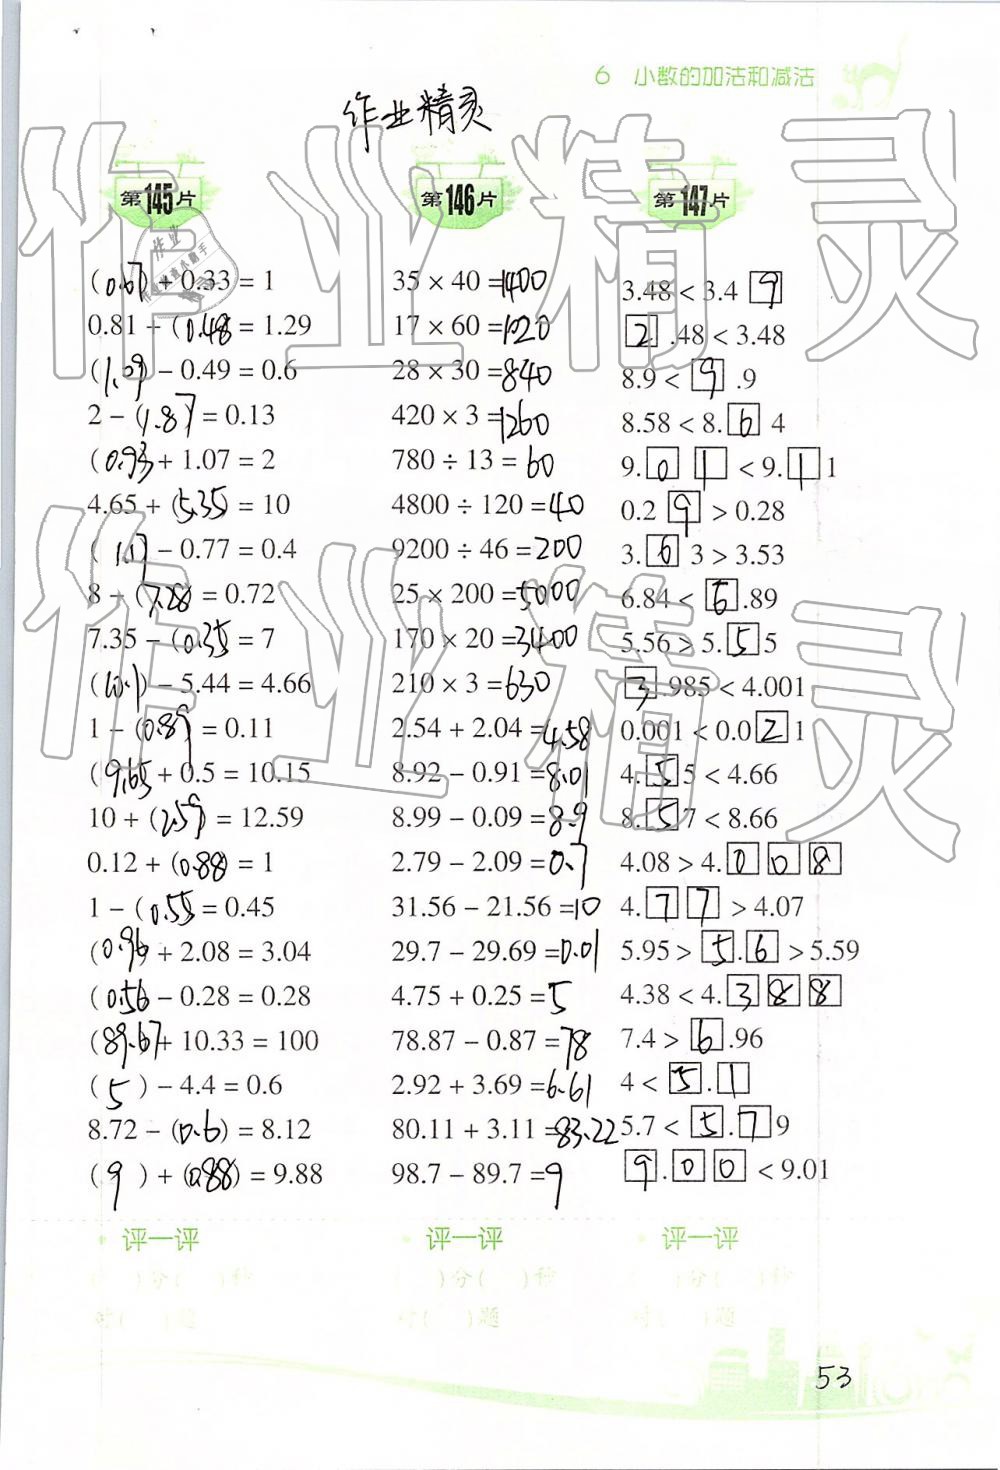 6 小数的加法和减法
作业精灵
第145片
(0.67) + 0.33 = 1
0.81 + (0.48 = 1.29
(1.09) - 0.49 = 0.6
2 - (1.87 = 0.13
(0.93 + 1.07 = 2
4.65 + (5.35) = 10
(1.17 - 0.77 = 0.4
8 - (7.28 = 0.72
7.35 - (0.35 = 7
(10.1) - 5.44 = 4.66
1 - (0.89 = 0.11
(9.65 + 0.5 = 10.15
10 + (2.59) = 12.59
0.12 + (0.88) = 1
1 - (0.55 = 0.45
(0.96 + 2.08 = 3.04
(0.56 - 0.28 = 0.28
(89.67 + 10.33 = 100
(5) - 4.4 = 0.6
8.72 - (0.6) = 8.12
(9) + (0.88) = 9.88
评一评
( )分( )秒
对( )题
第146片
35 × 40 = 1400
17 × 60 = 1020
28 × 30 = 840
420 × 3 = 1260
780 ÷ 13 = 60
4800 ÷ 120 = 40
9200 ÷ 46 = 200
25 × 200 = 5000
170 × 20 = 3400
210 × 3 = 630
2.54 + 2.04 = 4.58
8.92 - 0.91 = 8.01
8.99 - 0.09 = 8.9
2.79 - 2.09 = 0.7
31.56 - 21.56 = 10
29.7 - 29.69 = 0.01
4.75 + 0.25 = 5
78.87 - 0.87 = 78
2.92 + 3.69 = 6.61
80.11 + 3.11 = 83.22
98.7 - 89.7 = 9
评一评
( )分( )秒
对( )题
第147片
3.48 < 3.4 9
2 .48 < 3.48
8.9 < 9 .9
8.58 < 8. 6 4
9. 0 1 < 9. 1 1
0.2 9 > 0.28
3. 6 3 > 3.53
6.84 < 6 .89
5.56 > 5. 5 5
3 .985 < 4.001
0.001 < 0.0 2 1
4. 5 5 < 4.66
8. 5 7 < 8.66
4.08 > 4. 0 0 8
4. 7 7 > 4.07
5.95 > 5 . 6 > 5.59
4.38 < 4. 3 8 8
7.4 > 6 .96
4 < 5 . 1
5.7 < 5 . 7 9
9 . 0 0 < 9.01
评一评
( )分( )秒
对( )题
53
作业精灵
作业精灵